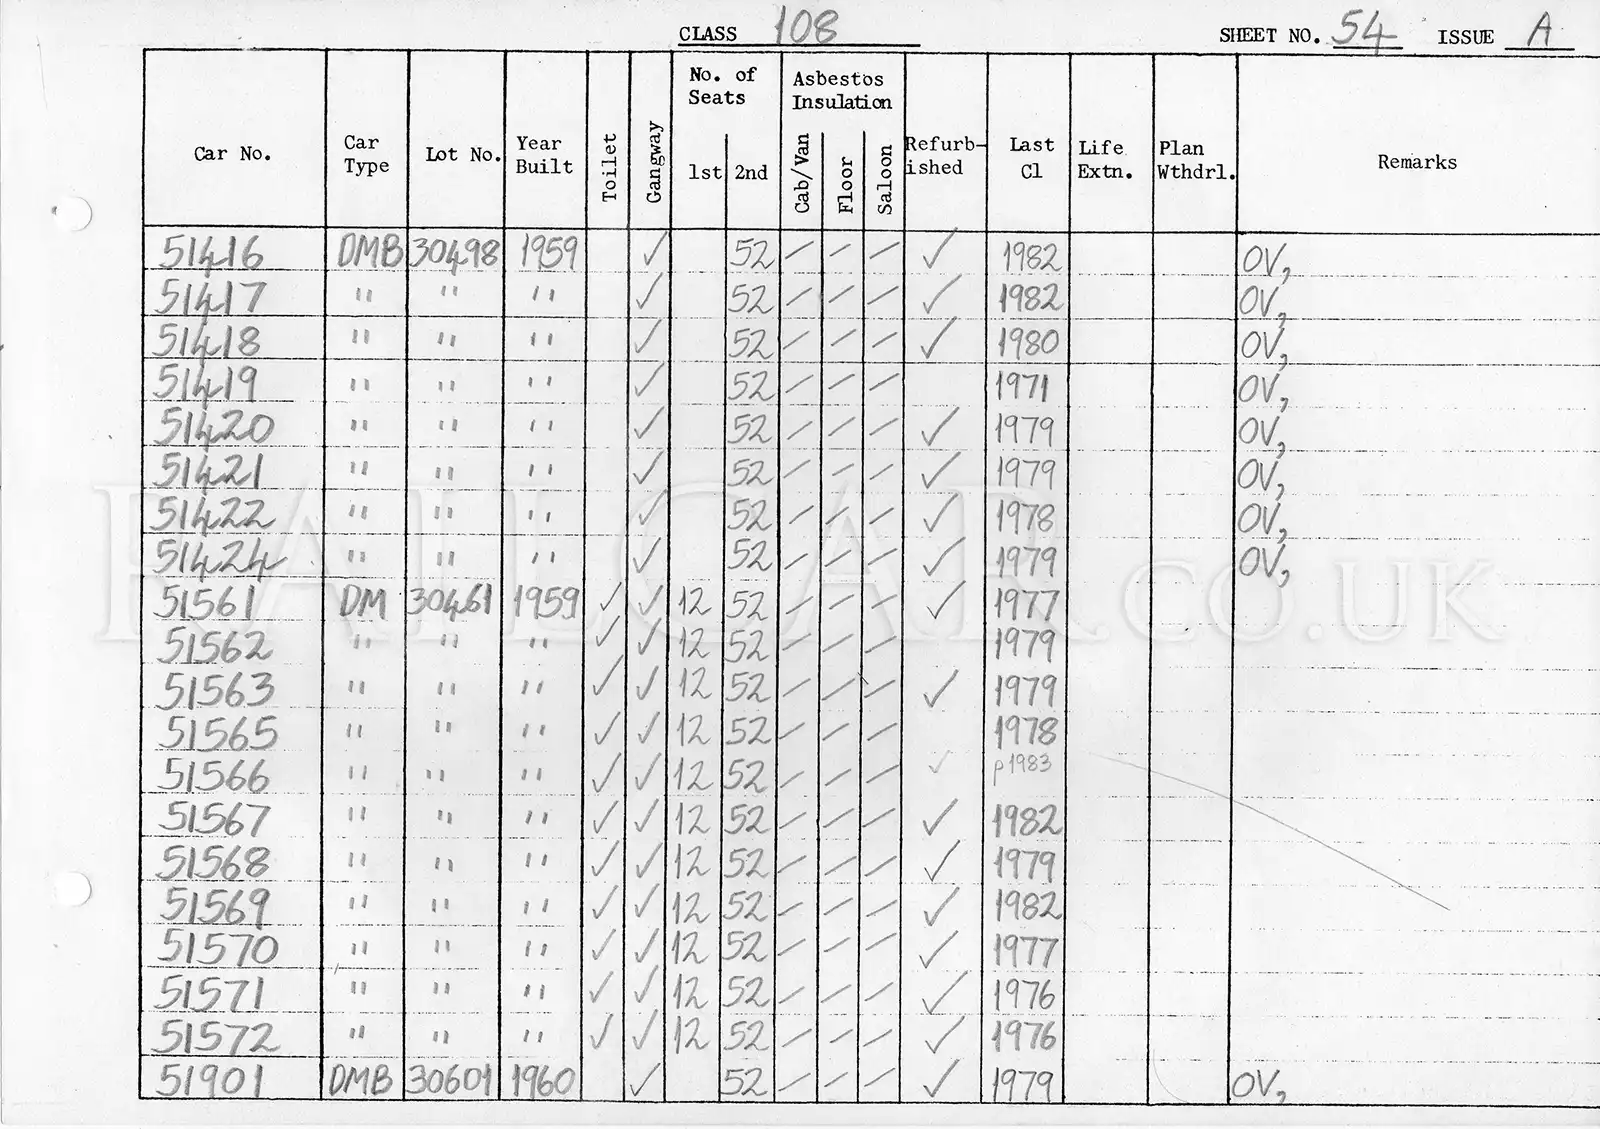 CLASS 108 SHEET NO. 54 ISSUE A
Car No. Car Type Lot No. Year Built Toilet Gangway No. of Seats 1st 2nd Asbestos Insulation Cab/Van Floor Saloon Refurb-ished Last Cl Life Extn. Plan Wthdrl. Remarks
51416 DMB 30498 1959 ✓ 52 / / / ✓ 1982 OV,
51417 " " " ✓ 52 / / / ✓ 1982 OV,
51418 " " " ✓ 52 / / / ✓ 1980 OV,
51419 " " " ✓ 52 / / / 1971 OV,
51420 " " " ✓ 52 / / / ✓ 1979 OV,
51421 " " " ✓ 52 / / / ✓ 1979 OV,
51422 " " " ✓ 52 / / / ✓ 1978 OV,
51424 " " " ✓ 52 / / / ✓ 1979 OV,
51561 DM 30461 1959 ✓ ✓ 12 52 / / / ✓ 1977
51562 " " " ✓ ✓ 12 52 / / / 1979
51563 " " " ✓ ✓ 12 52 / / / ✓ 1979
51565 " " " ✓ ✓ 12 52 / / / 1978
51566 " " " ✓ ✓ 12 52 / / / ✓ p1983
51567 " " " ✓ ✓ 12 52 / / / ✓ 1982
51568 " " " ✓ ✓ 12 52 / / / ✓ 1979
51569 " " " ✓ ✓ 12 52 / / / ✓ 1982
51570 " " " ✓ ✓ 12 52 / / / ✓ 1977
51571 " " " ✓ ✓ 12 52 / / / ✓ 1976
51572 " " " ✓ ✓ 12 52 / / / ✓ 1976
51901 DMB 30601 1960 ✓ 52 / / / ✓ 1979 OV,
RAILCAR.CO.UK